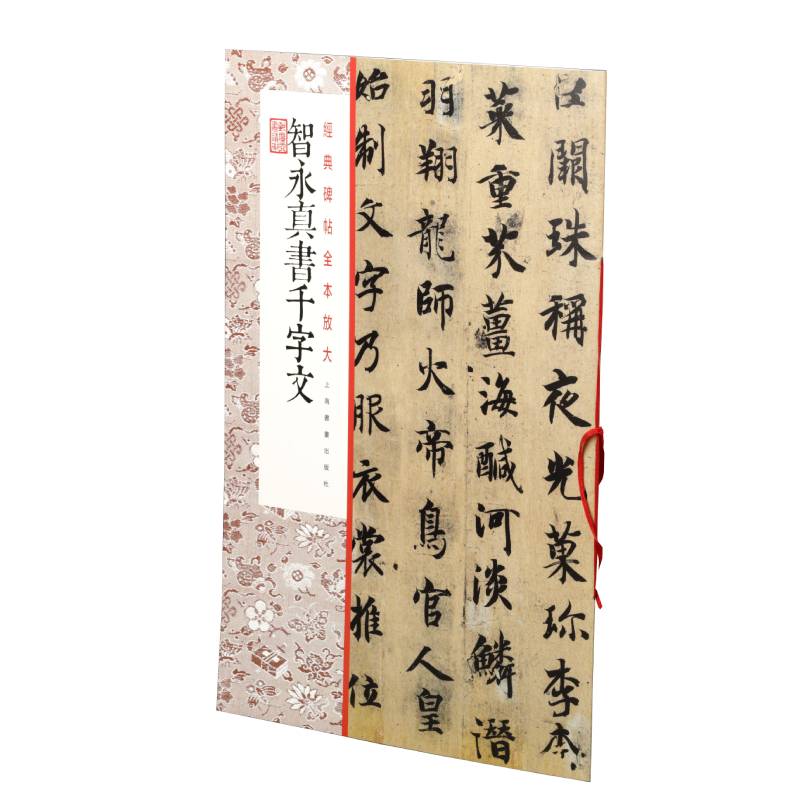 巨闕珠稱夜光菓珍李柰
菜重芥薑海醎河淡鱗潛
羽翔龍師火帝鳥官人皇
始制文字乃服衣裳推位
經典碑帖全本放大
上海書畫出版社
智永真書千字文